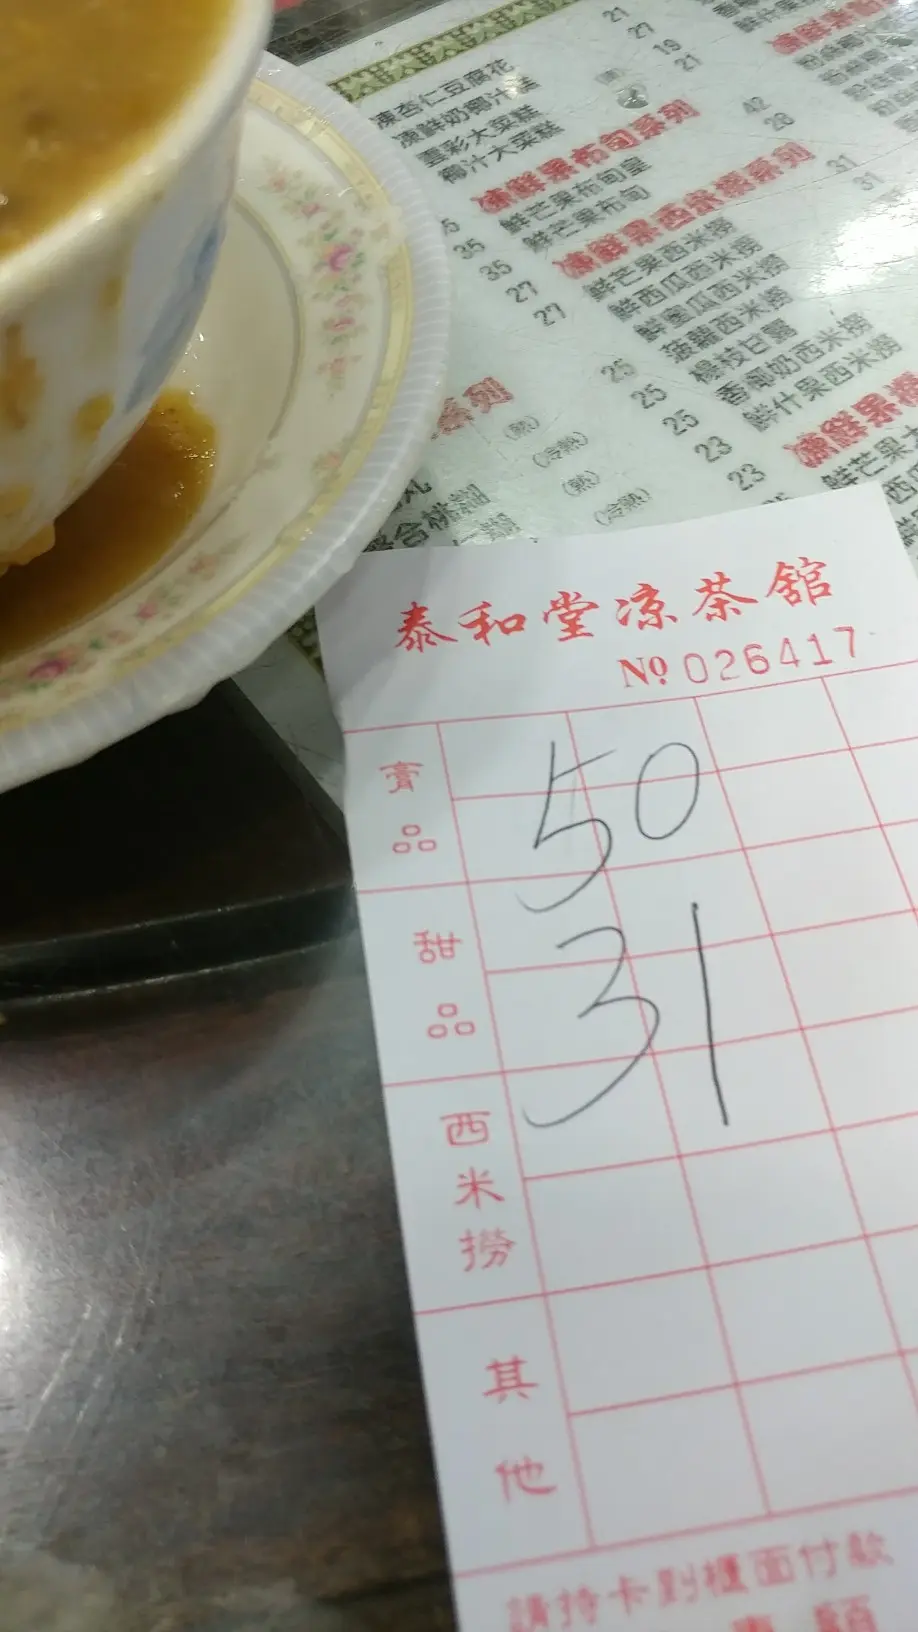 21
27
19
21
凍杏仁豆腐花
凍鮮奶椰汁糕
雲彩大菜糕
椰汁大菜糕
凍鮮果布甸系列
42
鮮芒果布甸皇
28
鮮芒果布甸
凍鮮果西米撈系列
35
35
27
27
31
31
鮮芒果西米撈
鮮西瓜西米撈
鮮蜜瓜西米撈
菠蘿西米撈
楊枝甘露
香椰奶西米撈
鮮什果西米撈
25
25
25
23
23
系列
(熱)
(冷熱)
(熱)
(冷熱)
合桃糊
泰和堂凉茶舘
Nº 026417
膏品
50
甜品
31
西米撈
其他
請持卡到櫃面付款